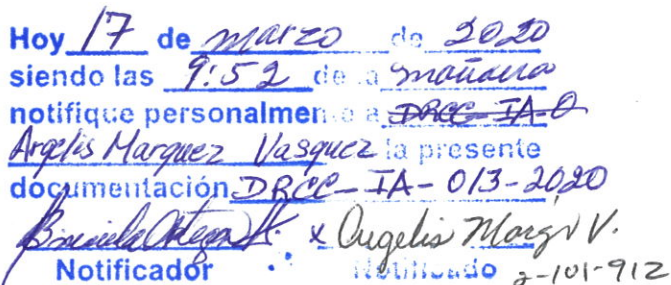 Hoy 17 de marzo de 2020
siendo las 9:52 de la mañana
notifique personalmente a DRCC-IA-0
Argelis Marquez Vasquez la presente
documentación DRCC-IA-013-2020
x
Notificador Notificado 2-101-912